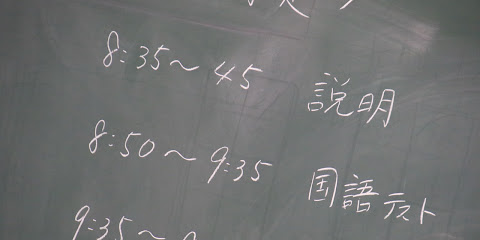 8:35〜45 説明
8:50〜9:35 国語テスト
9:35〜